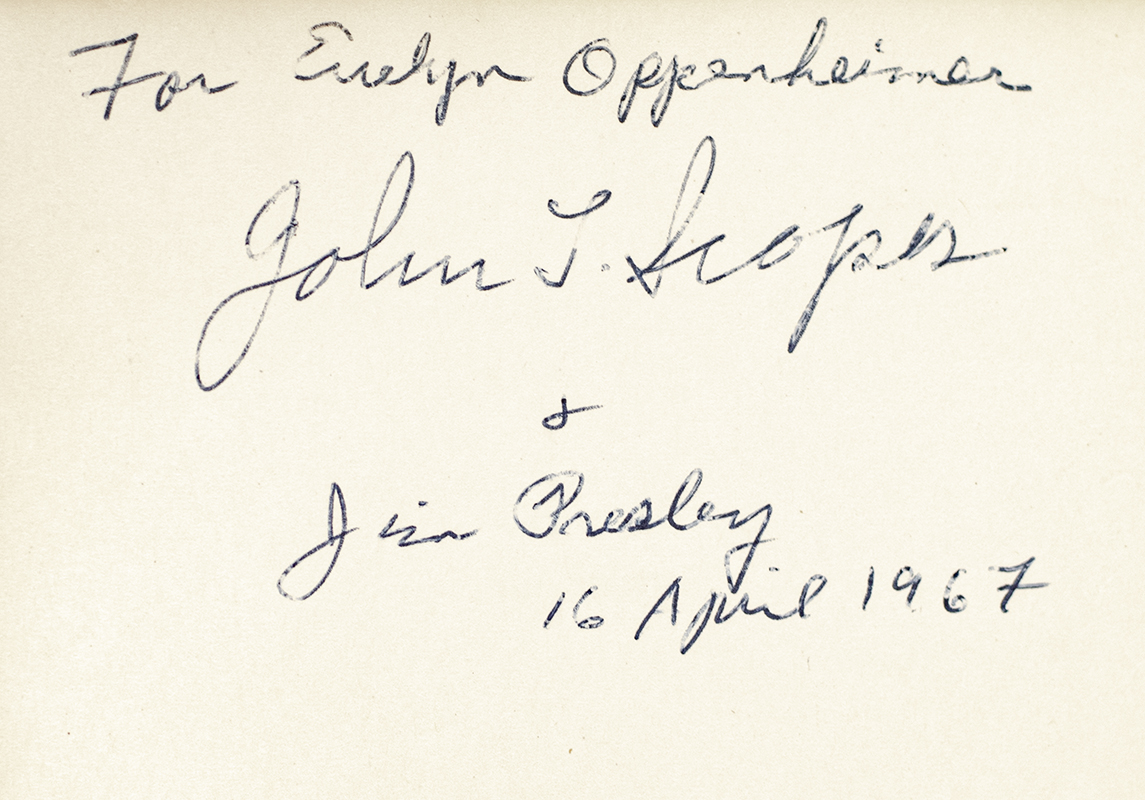 For Evelyn Oppenheimer
John T. Scopes
&
Jim Presley
16 April 1967